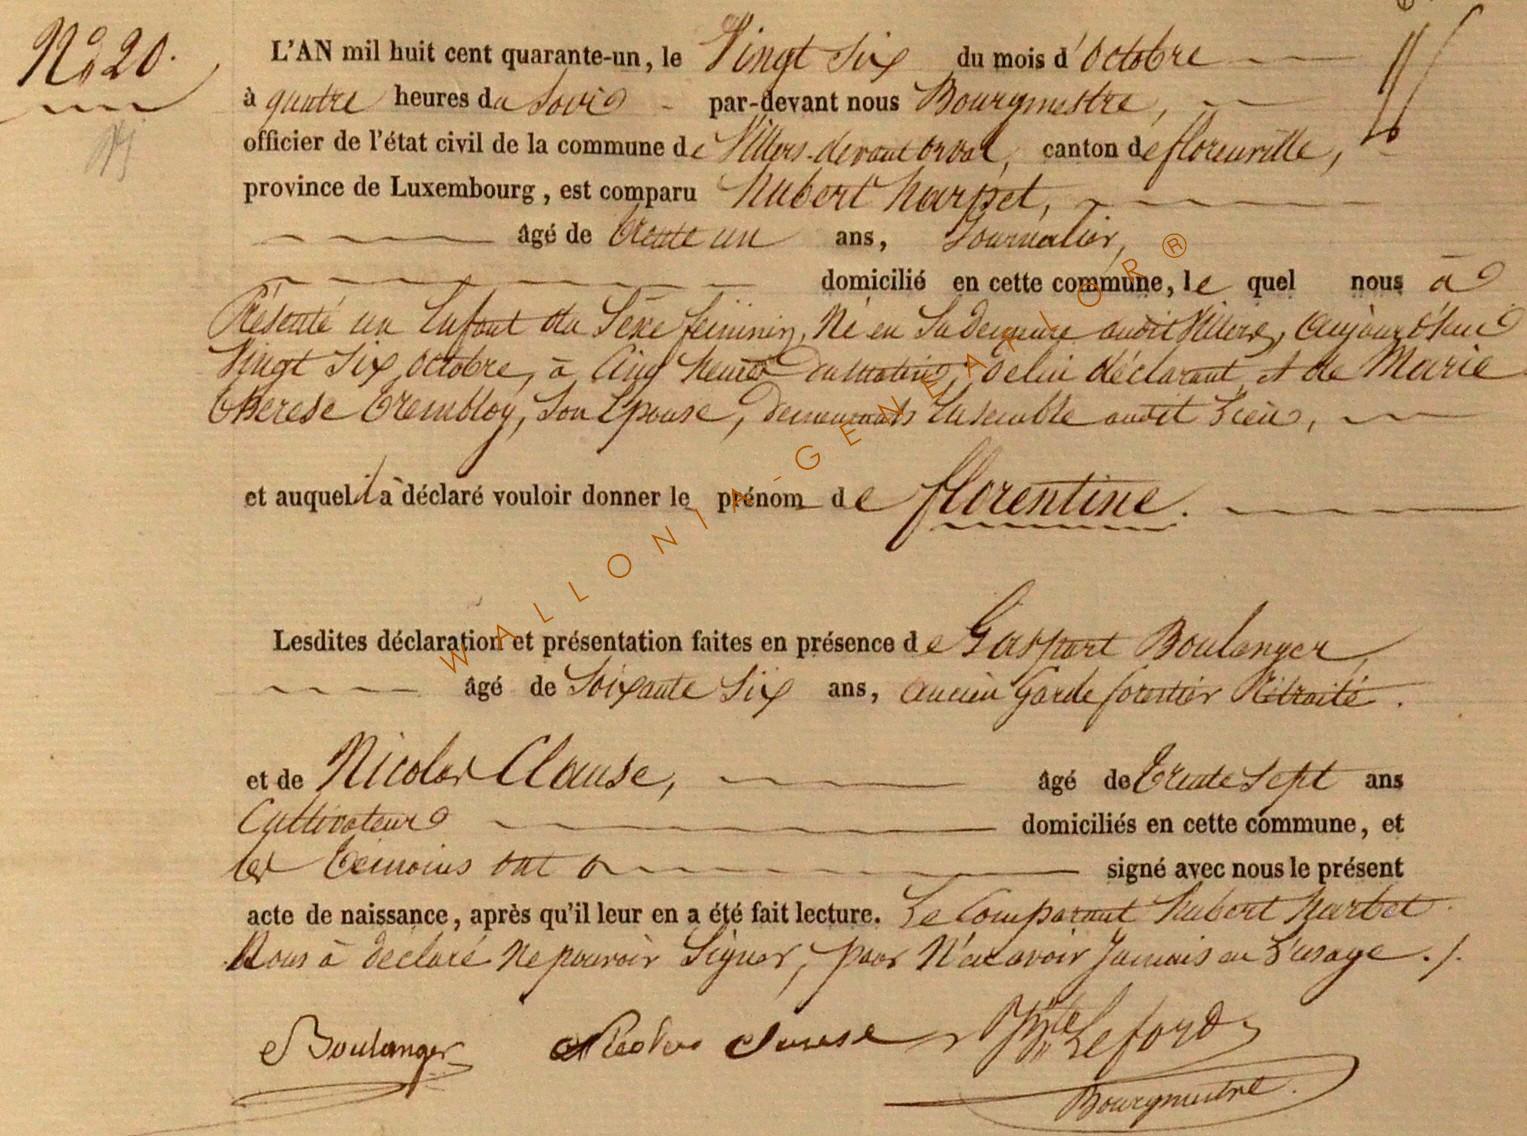 No 20.
L'AN mil huit cent quarante-un, le Vingt Six du mois d'octobre
à quatre heures du Soir par-devant nous Bourgmestre,
officier de l'état civil de la commune de Villers-devant orval, canton de florenville,
province de Luxembourg, est comparu hubert harbet,
âgé de trente un ans, Journalier,
domicilié en cette commune, le quel nous à
Présenté un Enfant du Sexe féminin, Né en Sa Demeure audit Villers, aujourd'hui
Vingt Six octobre, à Cinq heures du matin, De lui déclarant et de Marie
therese trembloy, Son Epouse, Demeurants Ensemble audit Lieu,
et auquel il à déclaré vouloir donner le prénom de florentine.
Lesdites déclaration et présentation faites en présence de Gaspart Boulanger
âgé de Soixante Six ans, ancien Garde forestier Rétraité.
et de Nicolas Clause, âgé de trente Sept ans
Cultivateur domiciliés en cette commune, et
les témoins ont signé avec nous le présent
acte de naissance, après qu'il leur en a été fait lecture. Le Comparant hubert harbet
Nous à déclaré Ne pouvoir Signer, pour N'en avoir Jamais eu L'usage ./.
Boulanger Nicolas Clause Leford
Bourgmestre.
WALLONIA-GENEALOR®